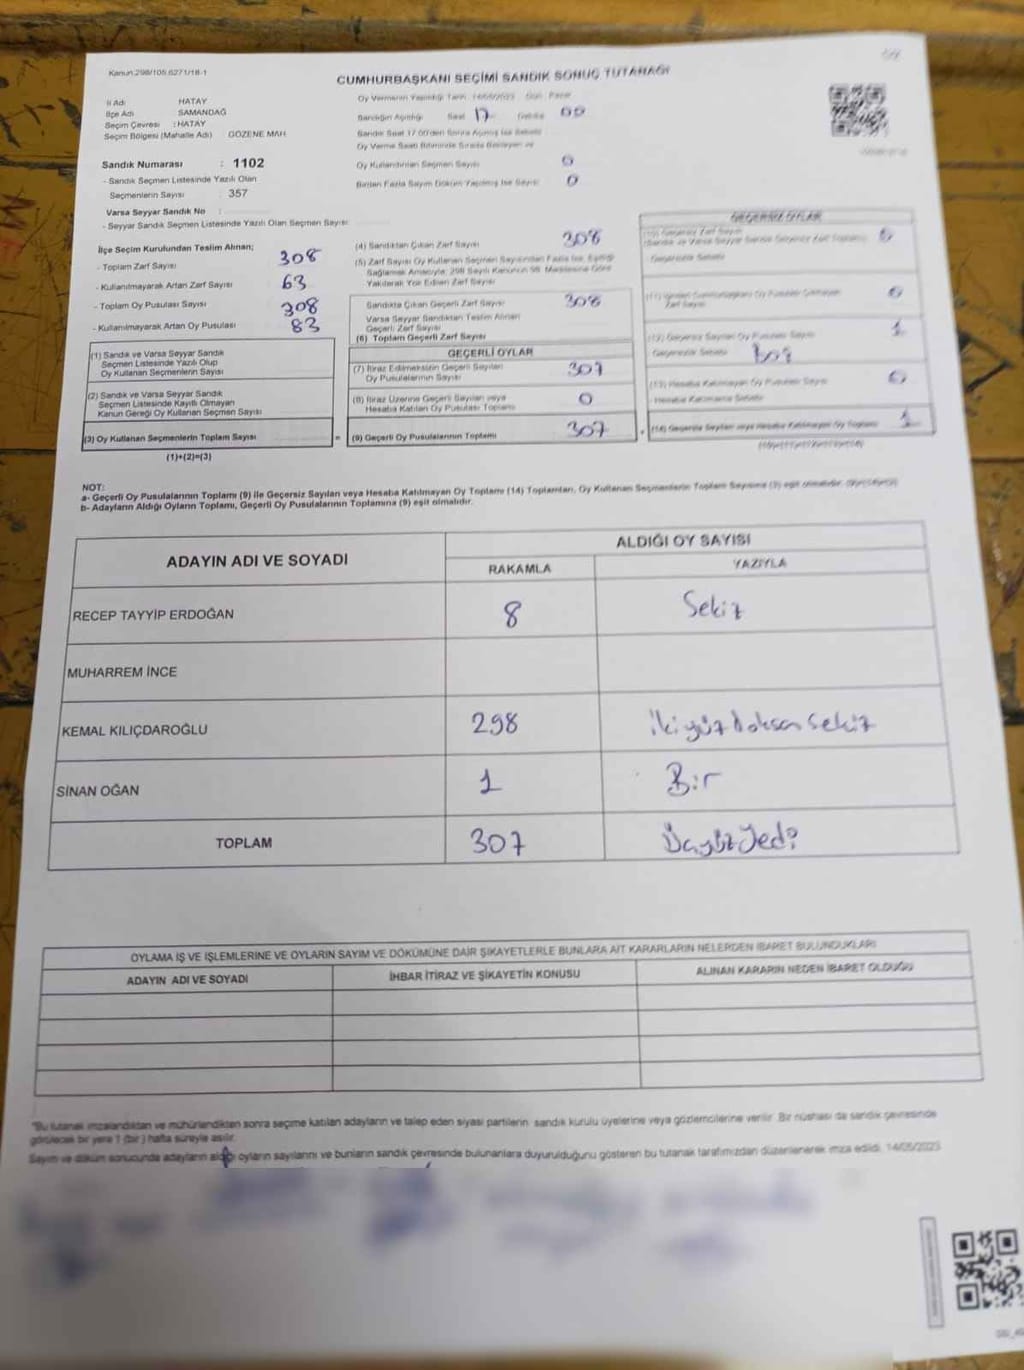 Kanun:298/105,6271/18-1
CUMHURBAŞKANI SEÇİMİ SANDIK SONUÇ TUTANAĞI
İl Adı HATAY
İlçe Adı SAMANDAĞ
Seçim Çevresi : HATAY
Seçim Bölgesi (Mahalle Adı) GÖZENE MAH.
Sandık Numarası : 1102
- Sandık Seçmen Listesinde Yazılı Olan
Seçmenlerin Sayısı : 357
Varsa Seyyar Sandık No :
- Seyyar Sandık Seçmen Listesinde Yazılı Olan Seçmen Sayısı:
Oy Vermenin Yapıldığı Tarih : 14/05/2023 Gün: Pazar
Sandığın Açıldığı Saat 17 Dakika 00
Sandık Saat 17.00'den Sonra Açılmış İse Sebebi
Oy Verme Saati Bitiminde Sırada Bekleyen ve
Oy Kullandırılan Seçmen Sayısı 0
Birden Fazla Sayım Döküm Yapılmış İse Sayısı 0
İlçe Seçim Kurulundan Teslim Alınan;
- Toplam Zarf Sayısı 308
- Kullanılmayarak Artan Zarf Sayısı 63
- Toplam Oy Pusulası Sayısı 308
- Kullanılmayarak Artan Oy Pusulası 83
(1) Sandık ve Varsa Seyyar Sandık
Seçmen Listesinde Yazılı Olup
Oy Kullanan Seçmenlerin Sayısı
(2) Sandık ve Varsa Seyyar Sandık
Seçmen Listesinde Kayıtlı Olmayan
Kanun Gereği Oy Kullanan Seçmen Sayısı
(3) Oy Kullanan Seçmenlerin Toplam Sayısı =
(1)+(2)=(3)
(4) Sandıktan Çıkan Zarf Sayısı 308
(5) Zarf Sayısı Oy Kullanan Seçmen Sayısından Fazla İse, Eşitliği
Sağlamak Amacıyla, 298 Sayılı Kanunun 98. Maddesine Göre
Yakılarak Yok Edilen Zarf Sayısı
Sandıkta Çıkan Geçerli Zarf Sayısı 308
Varsa Seyyar Sandıktan Teslim Alınan
Geçerli Zarf Sayısı
(6) Toplam Geçerli Zarf Sayısı
GEÇERLİ OYLAR
(7) İtiraz Edilmeksizin Geçerli Sayılan
Oy Pusulalarının Sayısı 307
(8) İtiraz Üzerine Geçerli Sayılan veya
Hesaba Katılan Oy Pusulası Toplamı 0
(9) Geçerli Oy Pusulalarının Toplamı 307
GEÇERSİZ OYLAR
(10) Geçersiz Zarf Sayısı 0
(Sandık ve Varsa Seyyar Sandık Geçersiz Zarf Toplamı)
Geçersizlik Sebebi
Zarf Sayısı 0
(12) Geçersiz Sayılan Oy Pusulası Sayısı 1
Geçersizlik Sebebi
(13) Hesaba Katılmayan Oy Pusulası Sayısı 0
- Hesaba Katılmama Sebebi
(14) Geçersiz Sayılan veya Hesaba Katılmayan Oy Toplamı 1
NOT:
a- Geçerli Oy Pusulalarının Toplamı (9) ile Geçersiz Sayılan veya Hesaba Katılmayan Oy Toplamı (14) Toplamları, Oy Kullanan Seçmenlerin Toplam Sayısına (3) eşit olmalıdır.
b- Adayların Aldığı Oyların Toplamı, Geçerli Oy Pusulalarının Toplamına (9) eşit olmalıdır.
ADAYIN ADI VE SOYADI
ALDIĞI OY SAYISI
RAKAMLA YAZIYLA
RECEP TAYYİP ERDOĞAN 8 Sekiz
MUHARREM İNCE
KEMAL KILIÇDAROĞLU 298 İki yüz doksan sekiz
SİNAN OĞAN 1 Bir
TOPLAM 307 Üçyüz Yedi
OYLAMA İŞ VE İŞLEMLERİNE VE OYLARIN SAYIM VE DÖKÜMÜNE DAİR ŞİKAYETLERLE BUNLARA AİT KARARLARIN NELERDEN İBARET BULUNDUKLARI
ADAYIN ADI VE SOYADI İHBAR İTİRAZ VE ŞİKAYETİN KONUSU ALINAN KARARIN NEDEN İBARET OLDUĞU
*Bu tutanak imzalandıktan ve mühürlendikten sonra seçime katılan adayların ve talep eden siyasi partilerin sandık kurulu üyelerine veya gözlemcilerine verilir. Bir nüshası da sandık çevresinde
görülecek bir yere 1 (bir) hafta süreyle asılır.
Sayım ve döküm sonucunda adayların aldığı oyların sayılarını ve bunların sandık çevresinde bulunanlara duyurulduğunu gösteren bu tutanak tarafımızdan düzenlenerek imza edildi. 14/05/2023